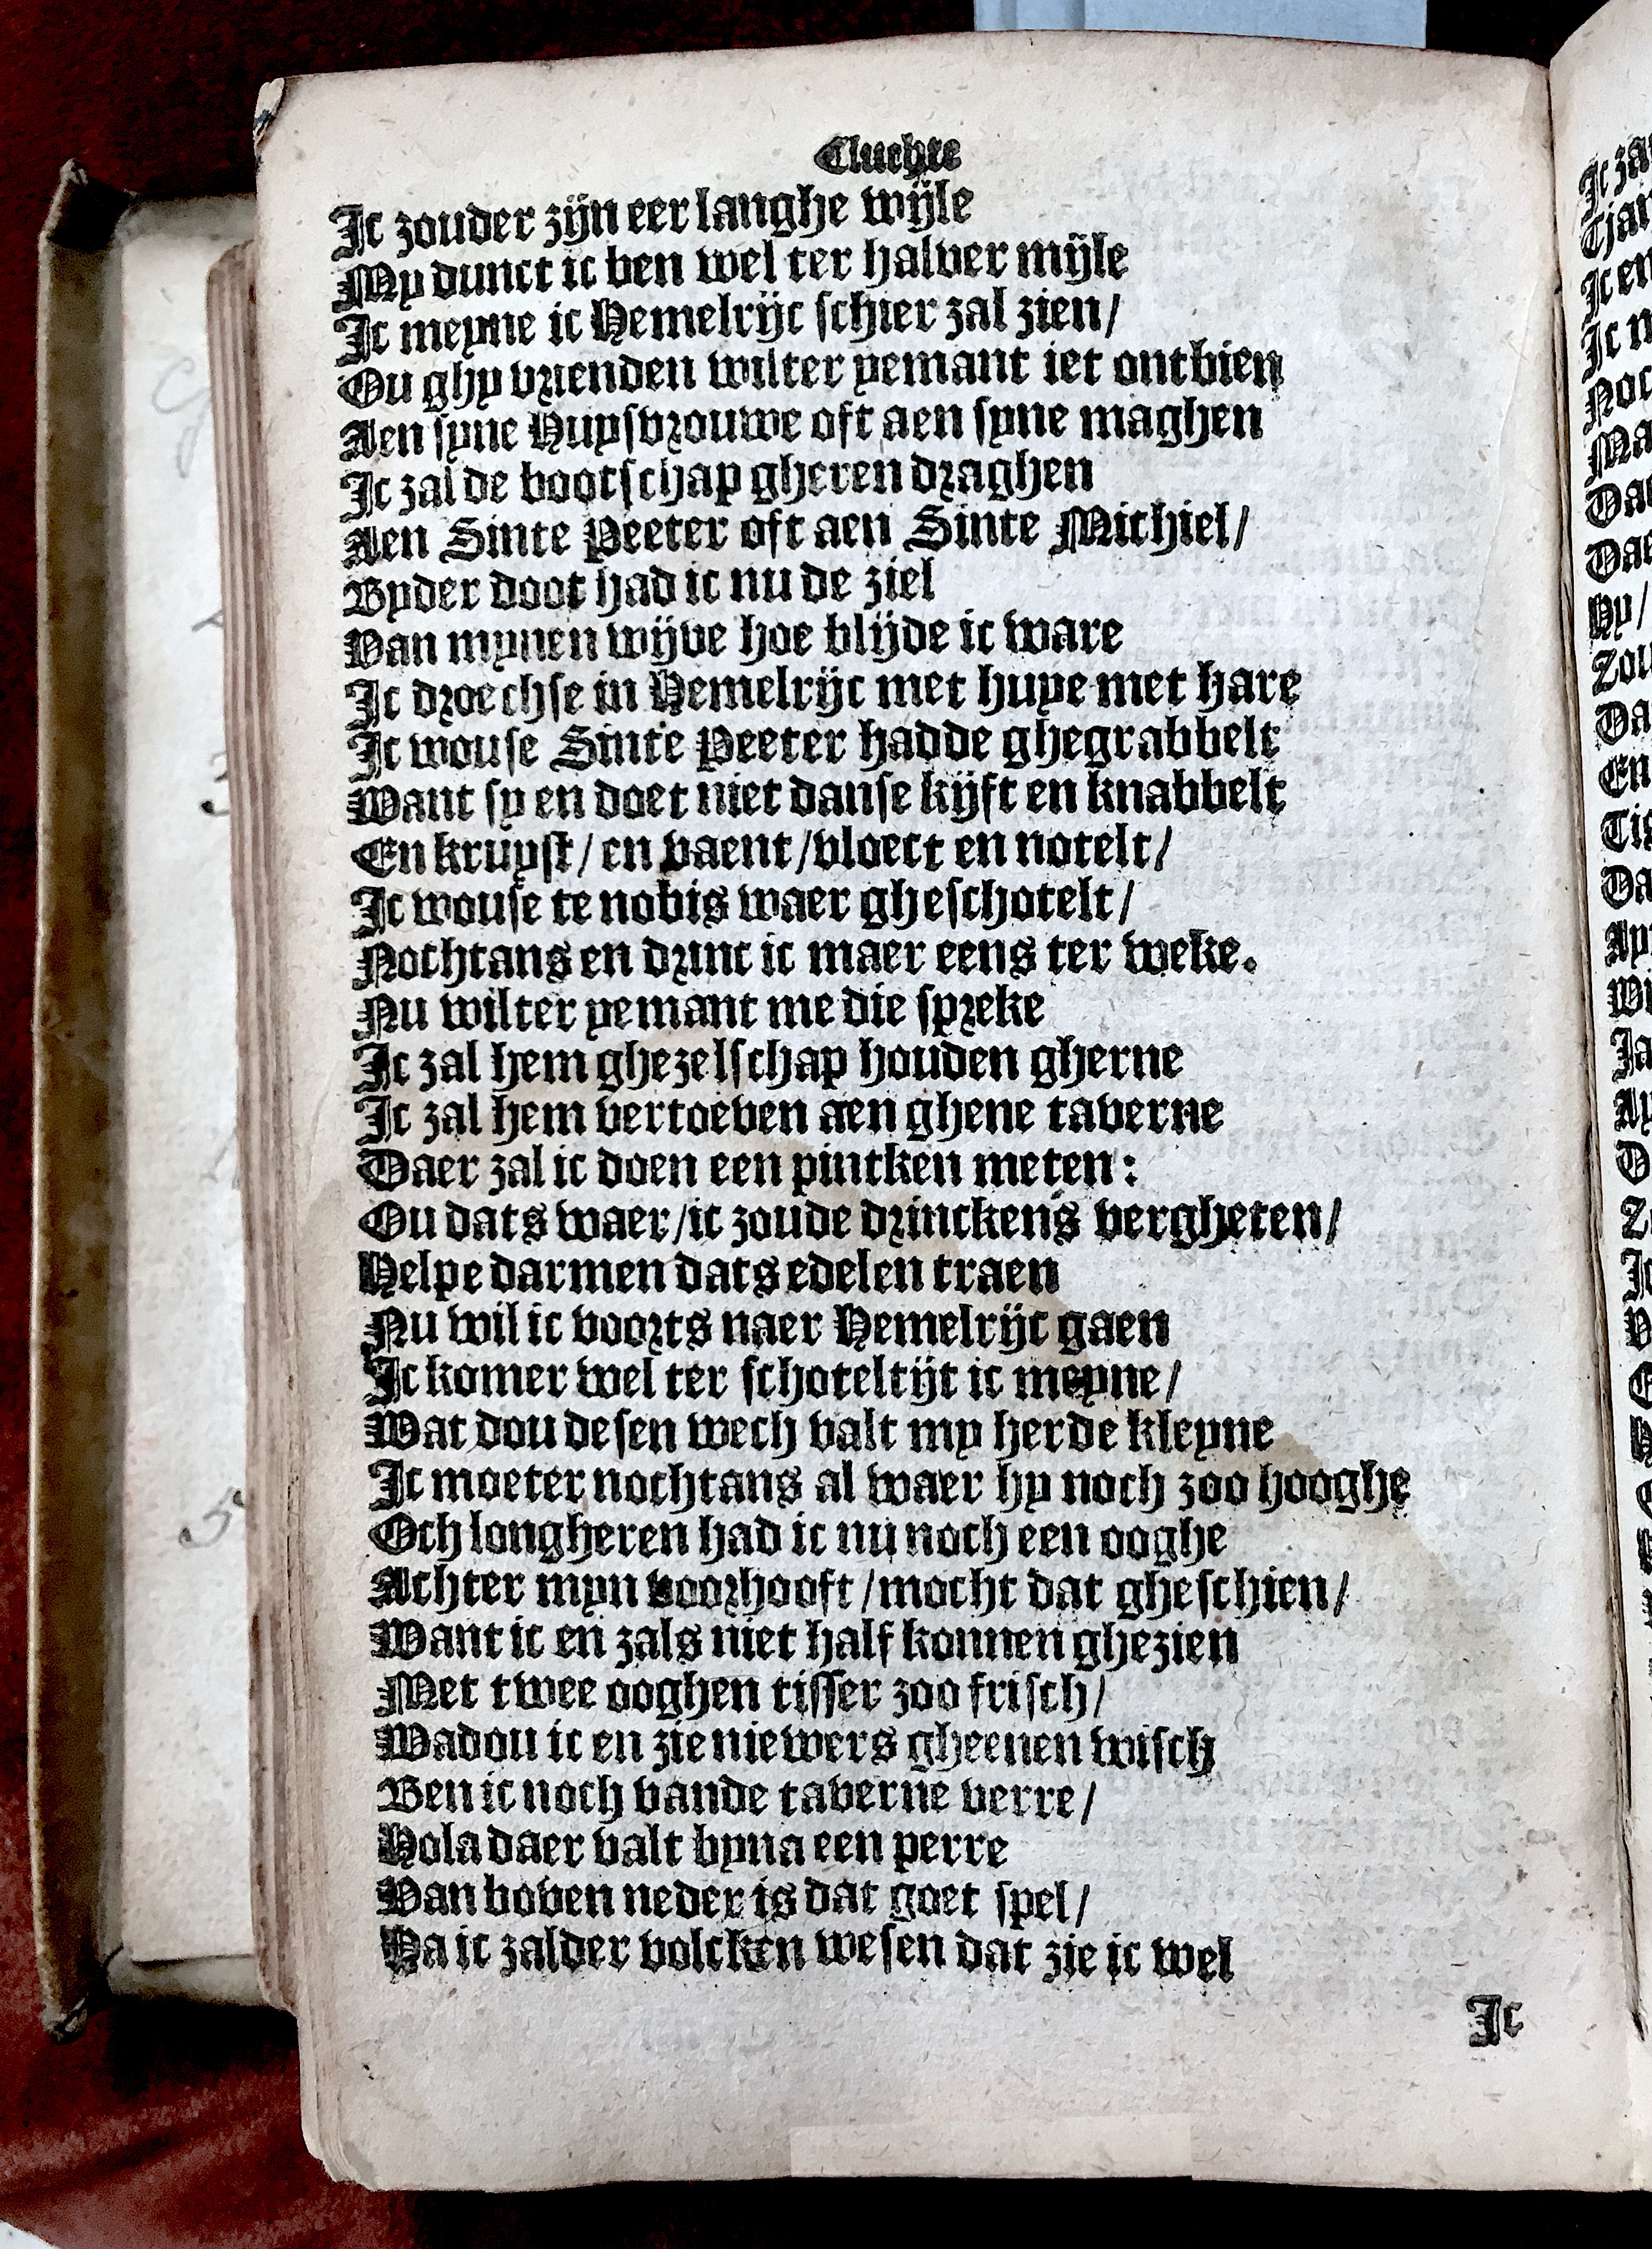 Cluchte
Ic zouder zijn eer langhe wijle
My dunct ic ben wel ter halver mijle
Ic meyne ic Hemelrijc schier zal zien/
Ou ghy vrienden wilter yemant iet ontbien
Aen syne Huysvrouwe oft aen syne maghen
Ic zal de bootschap gheren draghen
Aen Sinte Peeter oft aen Sinte Michiel/
Byder doot had ic nu de ziel
Van mynen wijve hoe blijde ic ware
Ic droechse in Hemelrijc met huye met hare
Ic wouse Sinte Peeter hadde ghegrabbelt
Want sy en doet niet danse kijft en knabbelt
En kruyst/ en vaent/vloect en notelt/
Ic wouse te nobis waer gheschotelt/
Nochtans en drinc ic maer eens ter weke.
Nu wilter yemant me die spreke
Ic zal hem ghezelschap houden gherne
Ic zal hem vertoeven aen ghene taverne
Daer zal ic doen een pintken meten:
Ou dats waer/ic zoude drinckens vergheten/
Helpe darmen dats edelen traen
Nu wil ic voorts naer Hemelrijc gaen
Ic komer wel ter schoteltijt ic meyne/
Wat dou desen wech valt my herde kleyne
Ic moeter nochtans al waer hy noch zoo hooghe
Och longheren had ic nu noch een ooghe
Achter myn voorhooft/mocht dat gheschien/
Want ic en zals niet half konnen ghezien
Met twee ooghen tisser zoo frisch/
Wadou ic en zie niewers gheenen wisch
Ben ic noch vande taverne verre/
Hola daer valt byna een perre
Van boven neder is dat goet spel/
Ha ic zalder volcken wesen dat zie ic wel
Ic